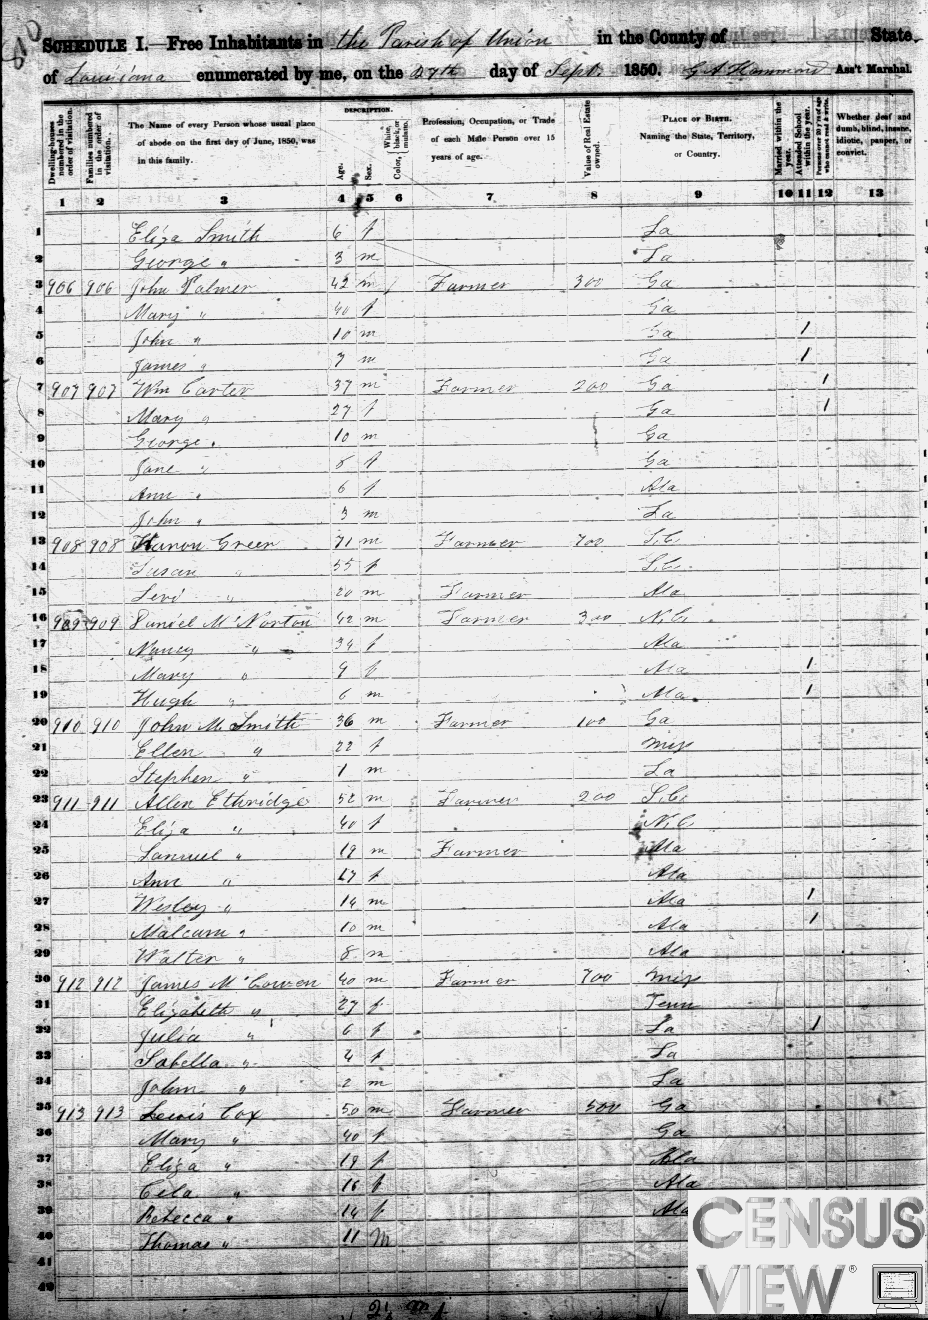 SCHEDULE I.—Free Inhabitants in the Parish of Union in the County of State
of Louisiana enumerated by me, on the 27th day of Sept. 1850. G A Hammond Ass't Marshal.
Dwelling-houses numbered in the order of visitation.
Families numbered in the order of visitation.
The Name of every Person whose usual place of abode on the first day of June, 1850, was in this family.
DESCRIPTION.
Age.
Sex.
Color, White, black, or mulatto.
Profession, Occupation, or Trade of each Male Person over 15 years of age.
Value of Real Estate owned.
PLACE OF BIRTH. Naming the State, Territory, or Country.
Married within the year.
Attended School within the year.
Persons over 20 y'rs of age who cannot read & write.
Whether deaf and dumb, blind, insane, idiotic, pauper, or convict.
1 2 3 4 5 6 7 8 9 10 11 12 13
1 Eliza Smith 6 f La
2 George " 3 m La
3 906 906 John Palmer 42 m Farmer 300 Ga
4 Mary " 40 f Ga
5 John " 10 m Ga 1
6 James " 7 m Ga 1
7 907 907 Wm Carter 37 m Farmer 200 Ga 1
8 Mary " 27 f Ga 1
9 George " 10 m Ga
10 Jane " 8 f Ga
11 Ann " 6 f Ala
12 John " 3 m La
13 908 908 Green 71 m Farmer 700 S.C.
14 Susan " 55 f S.C.
15 Levi " 20 m Farmer Ala
16 909 909 Daniel McNorton 42 m Farmer 300 N.C.
17 Nancy " 34 f Ala
18 Mary " 9 f Ala 1
19 Hugh " 6 m Ala 1
20 910 910 John M. Smith 36 m Farmer 100 Ga
21 Ellen " 22 f Mis
22 Stephen " 1 m La
23 911 911 Allen Ethridge 52 m Farmer 200 S.C.
24 Eliza " 40 f N.C.
25 Samuel " 19 m Farmer Ala
26 Ann " 17 f Ala
27 Wesley " 14 m Ala 1
28 Malcum " 10 m Ala 1
29 Walter " 8 m Ala
30 912 912 James McCowen 40 m Farmer 700 Mis
31 Elizabeth " 27 f Tenn
32 Julia " 6 f La 1
33 Sabella " 4 f La
34 John " 2 m La
35 913 913 Lewis Cox 50 m Farmer 500 Ga
36 Mary " 40 f Ga
37 Eliza " 19 f Ala
38 Cela " 16 f Ala
39 Rebecca " 14 f Ala
40 Thomas " 11 m
41
42
CENSUS
VIEW®